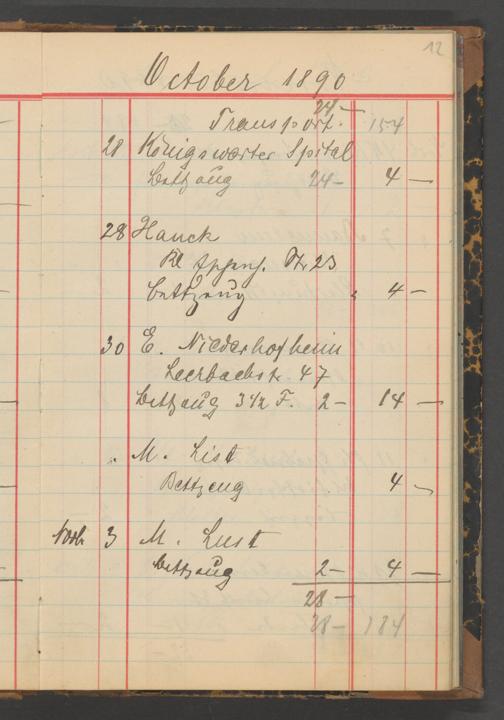 12
October 1890
24 —
Transport. 154
28 Königswarter Spital
Bettzeug 24 — 4 —
28 Hauck
23
Bettzeug 4 —
30 E. Niederhofheim
Leerbachstr. 47
Bettzeug 3 1/2 F. 2 — 14 —
" M. List
Bettzeug 4 —
Novb 3 M. Lust
Bettzeug 2 — 4 —
28 —
28 — 184